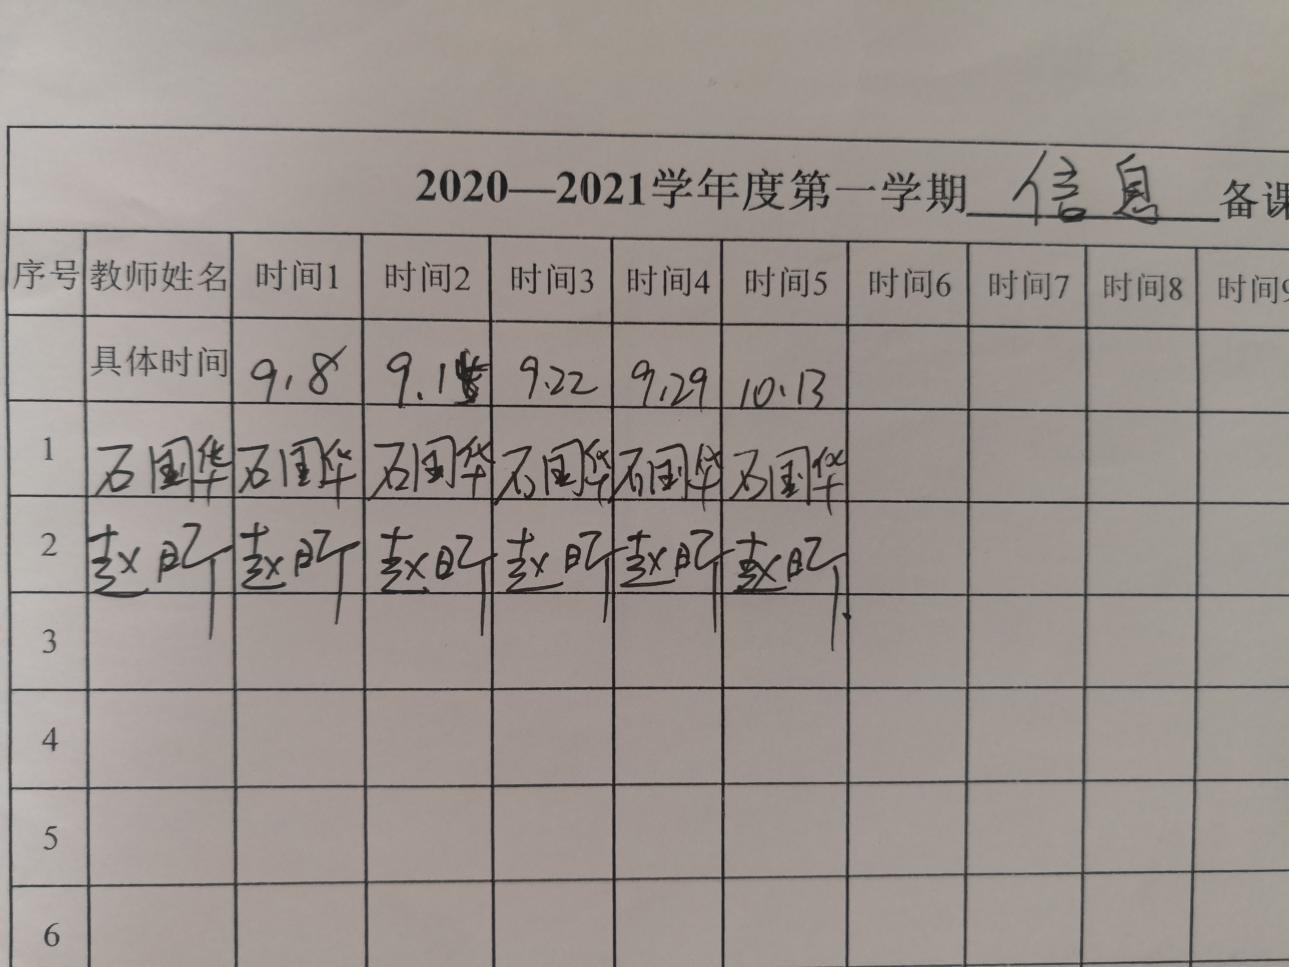 2020—2021学年度第一学期 信息 备课
序号 教师姓名 时间1 时间2 时间3 时间4 时间5 时间6 时间7 时间8 时间9
具体时间 9.8 9.22 9.29 10.13
1 石国华 石国华 石国华 石国华 石国华 石国华
2 赵 赵 赵 赵 赵 赵
3
4
5
6